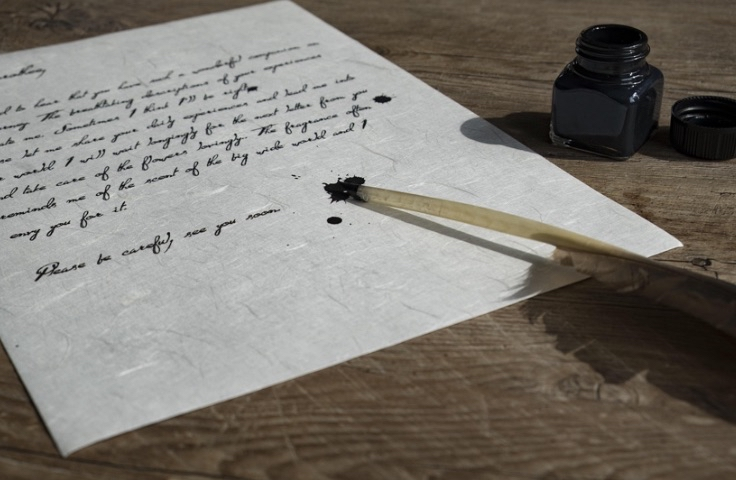 d to hear that you have such a wonderful companion on
The breathtaking descriptions of your experiences
me. Sometimes I think I'll be right
let me share your daily experiences and send me into
world I will wait longingly for the next letter from you
nd take care of the flowers lovingly. The fragrance often
reminds me of the scent of the big wide world and I
envy you for it.
Please be careful, see you soon